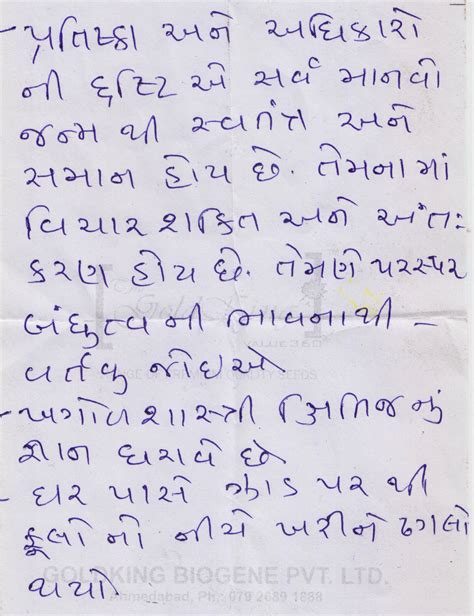 - પ્રતિષ્કા અને અધિકારો
ની દ્રષ્ટિ એ સર્વ માનવો
જન્મ થી સ્વતંત્ર અને
સમાન હોય છે. તેમનામાં
વિચાર શક્તિ અને અંતઃ
કરણ હોય છે. તેમણે પરસ્પર
બંધુત્વ ની ભાવનાથી -
વર્તવુ જોઇએ
- ખગોળશાસ્ત્રી ક્ષિતિજનું
જ્ઞાન ધરાવે છે
- ઘર પાસે ઝાડ પર થી
ફૂલો નો નીચે ખરીને ઢગલો
થયો
GOLDKING BIOGENE PVT. LTD.
Ahmedabad, Ph.: 079 2689 1888